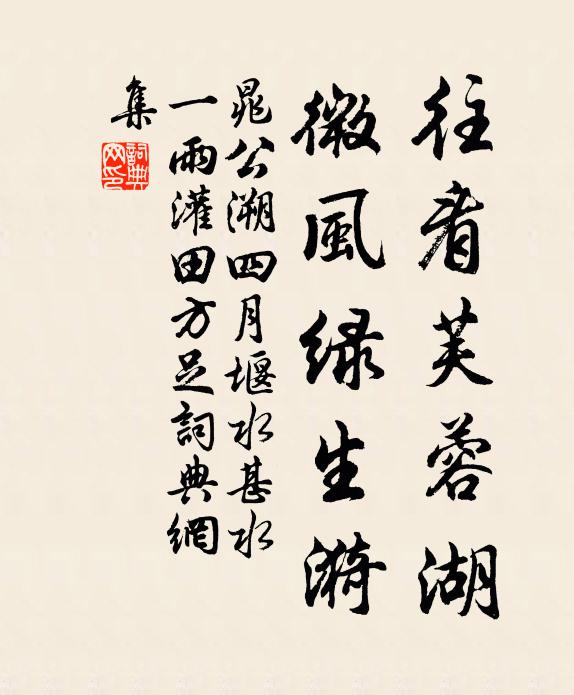 往看芙蓉湖
微風緑生漪
晁公溯四月堰水甚水
一雨灌田方足詞典網
集
詞典
網印